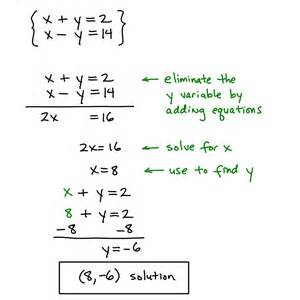 x + y = 2
x - y = 14
x + y = 2 ← eliminate the
x - y = 14 y variable by
adding equations
2x = 16
2x = 16 ← solve for x
x = 8 ← use to find y
x + y = 2
8 + y = 2
-8 -8
y = -6
(8, -6) solution